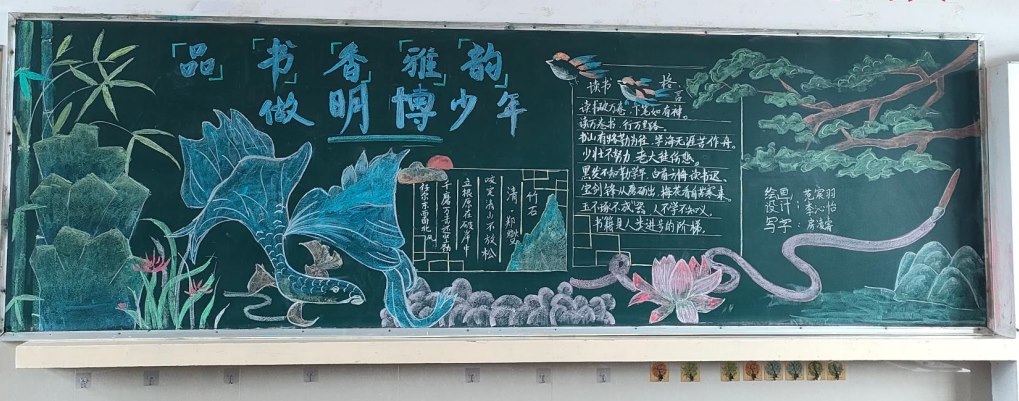 品书香雅韵
做明博少年
竹石
清 郑燮
咬定青山不放松
立根原在破岩中
千磨万击还坚劲
任尔东西南北风
读书格言
读书破万卷,下笔如有神。
读万卷书,行万里路。
书山有路勤为径,学海无涯苦作舟。
少壮不努力,老大徒伤悲。
黑发不知勤学早,白首方悔读书迟。
宝剑锋从磨砺出,梅花香自苦寒来。
玉不琢不成器,人不学不知义。
书籍是人类进步的阶梯。
绘画
设计 李沁怡
写字